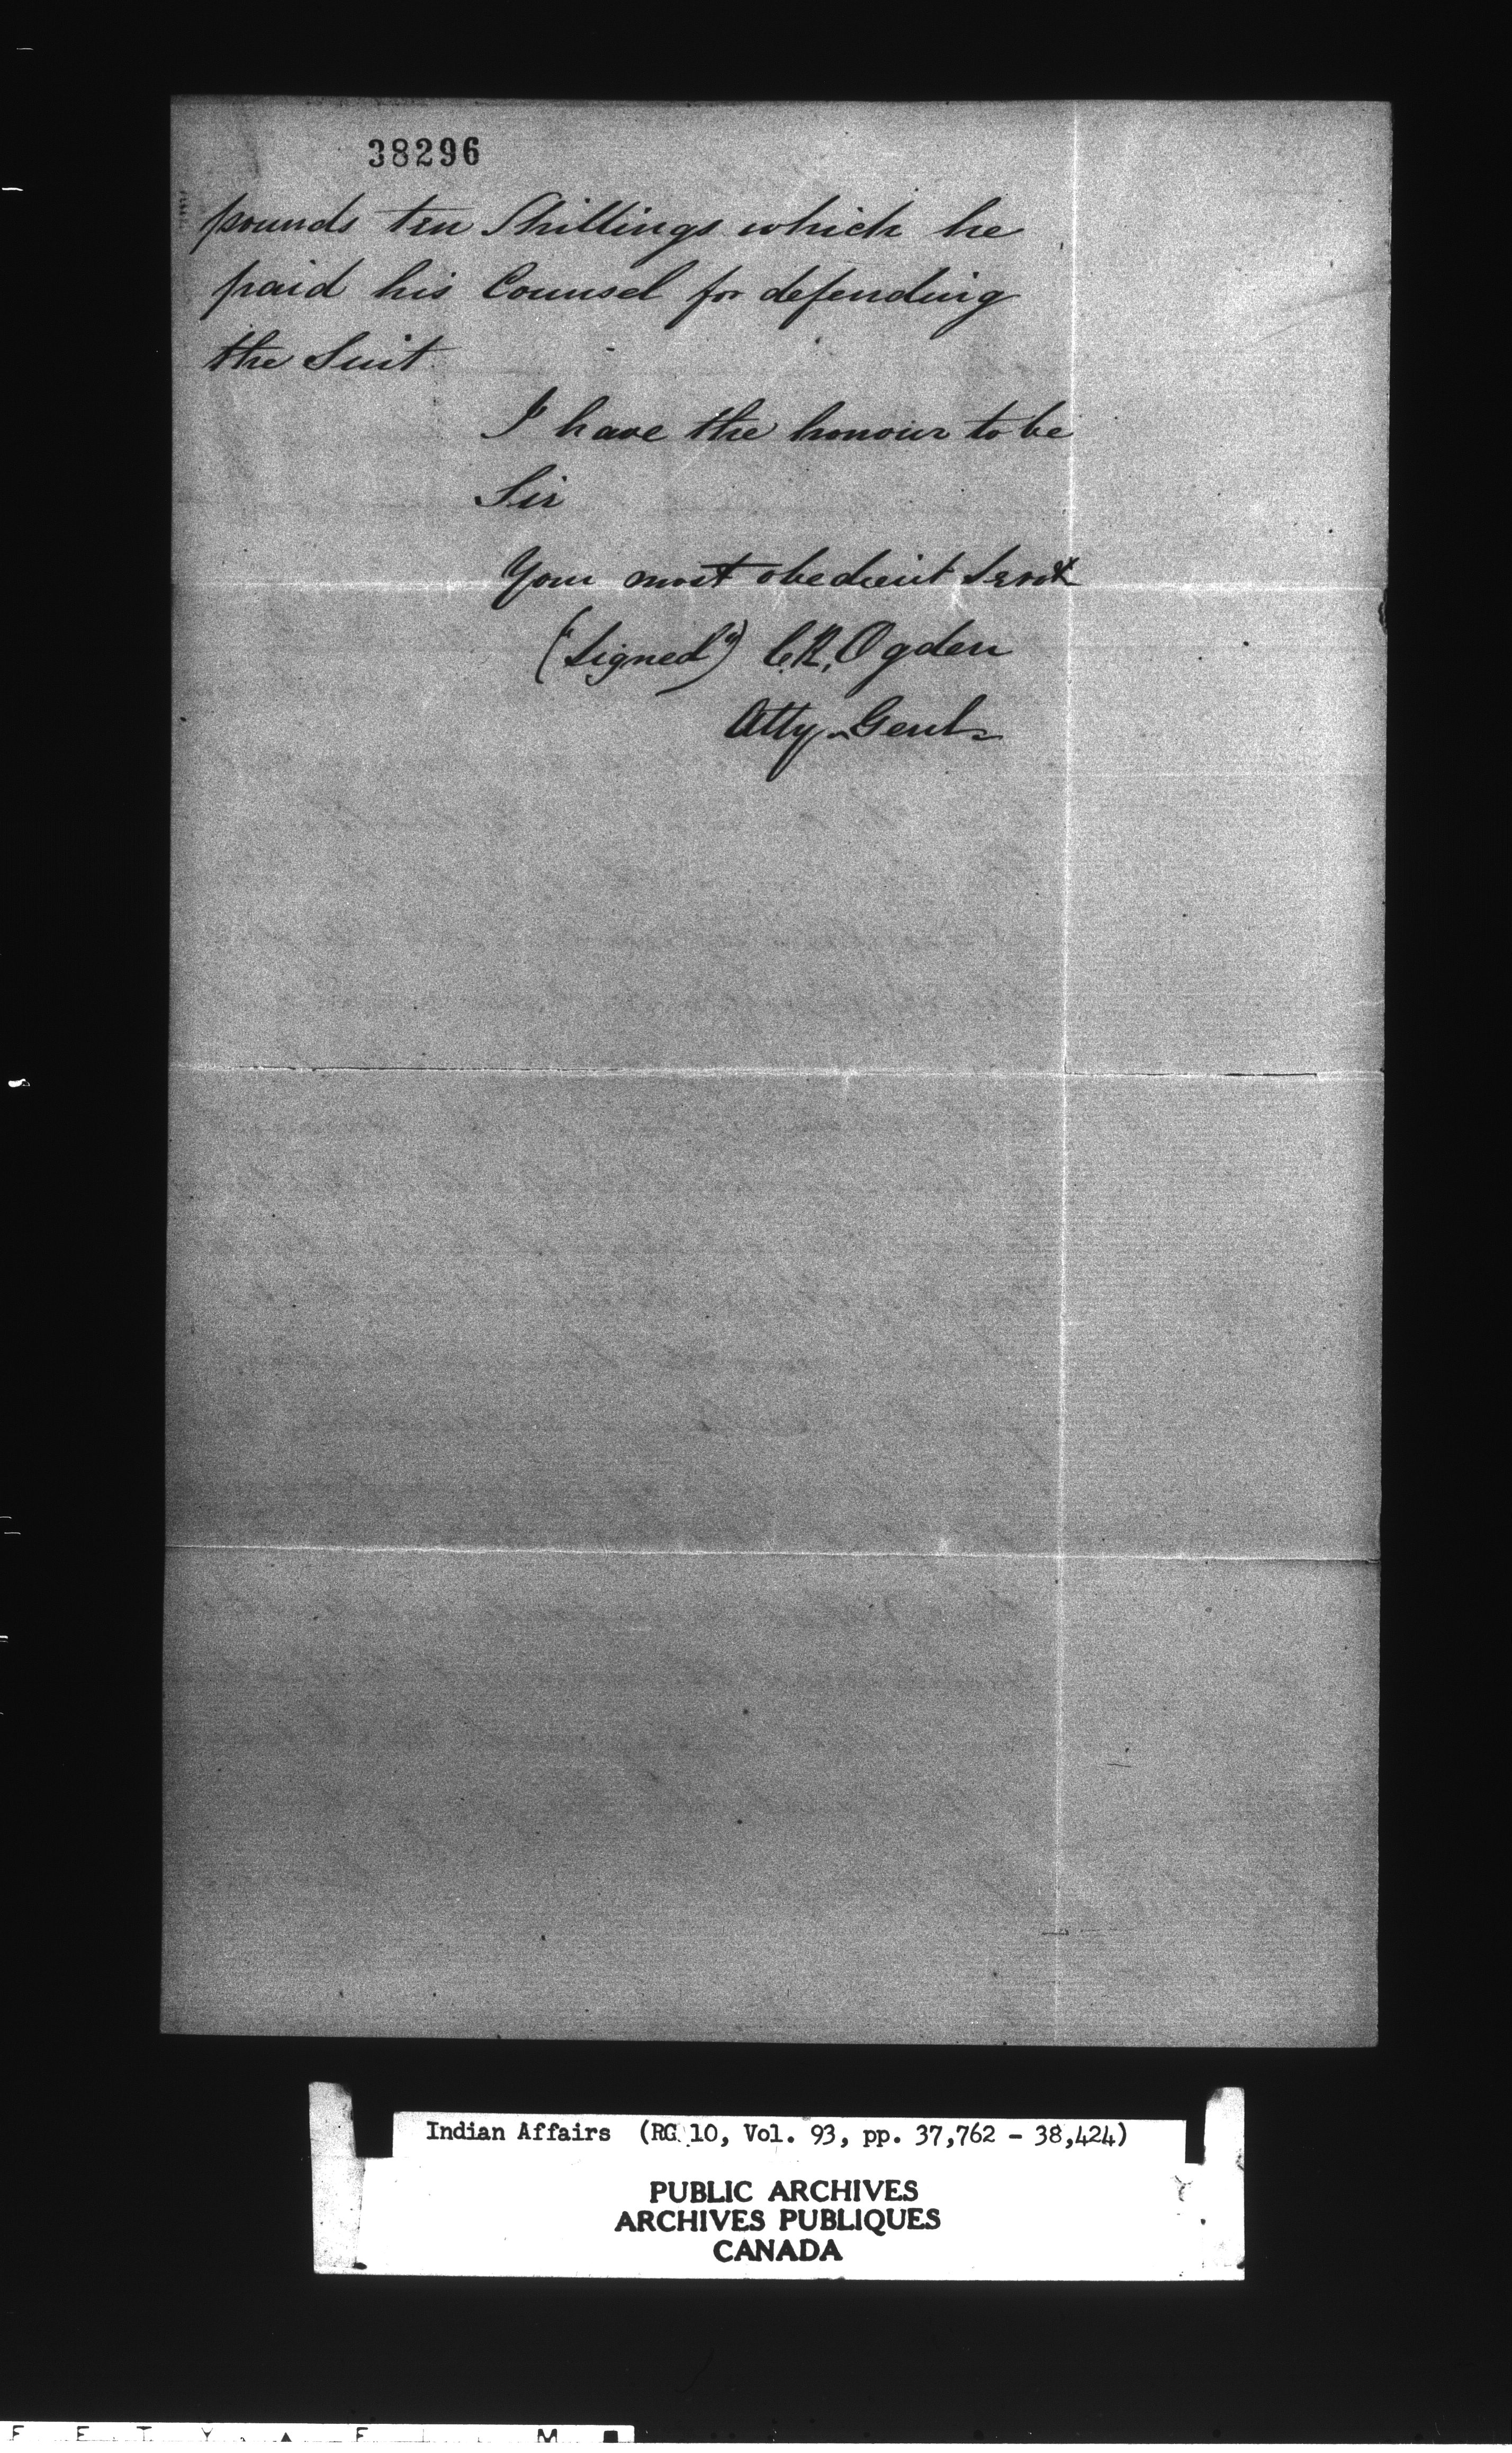 38296
pounds ten Shillings which he
paid his Counsel for defending
the Suit.
I have the honour to be
Sir
Your most obedient Servt
("Signed") C.R. Ogden
Atty. Genl.
Indian Affairs (RG 10, Vol. 93, pp. 37,762 - 38,424)
PUBLIC ARCHIVES
ARCHIVES PUBLIQUES
CANADA